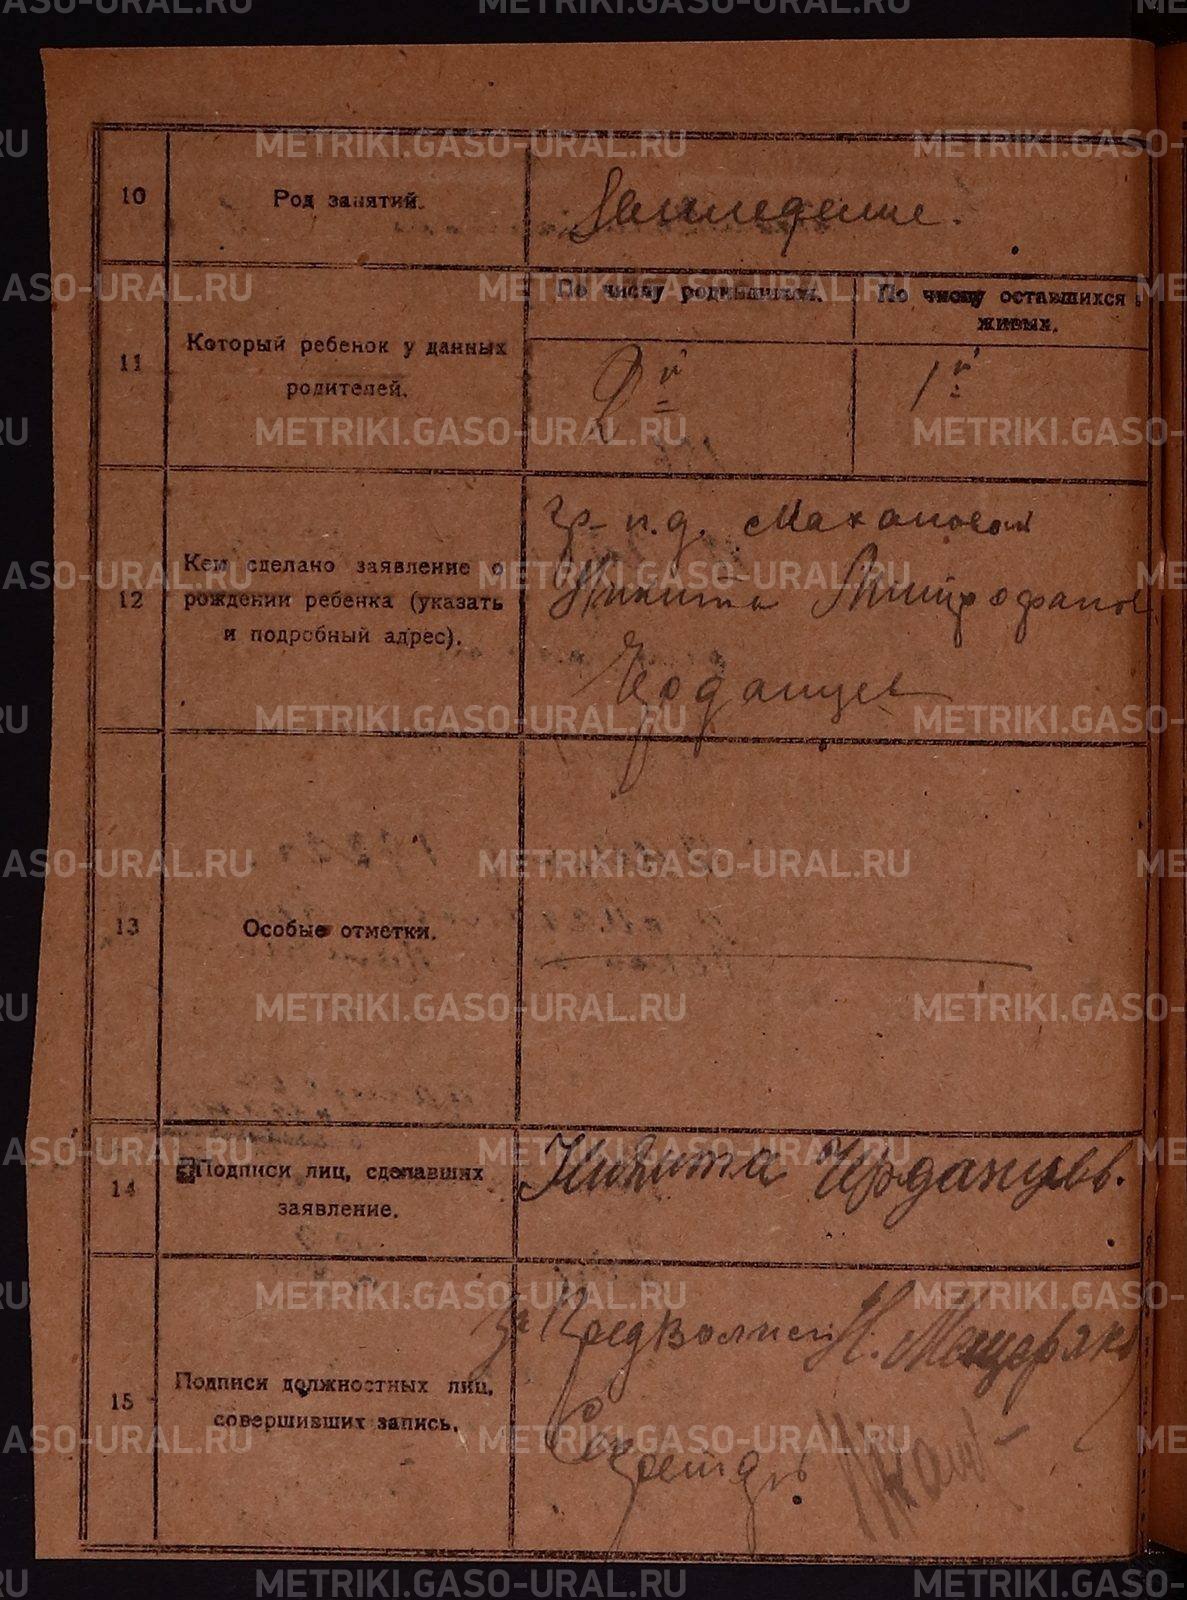 METRIKI.GASO-URAL.RU
10
Род занятий.
Земледелие.
11
Который ребенок у данных
родителей.
По числу родившихся.
По числу оставшихся
живых.
2й
1й
12
Кем сделано заявление о
рождении ребенка (указать
и подробный адрес).
гр-н. д. Махановой
Никита Митрофанов
Ерданцев
13
Особые отметки.
14
Подписи лиц, сделавших
заявление.
Никита Ерданцевъ.
15
Подписи должностных лиц,
совершивших запись.
Предволисп. Н. Мещеряков
Секретарь